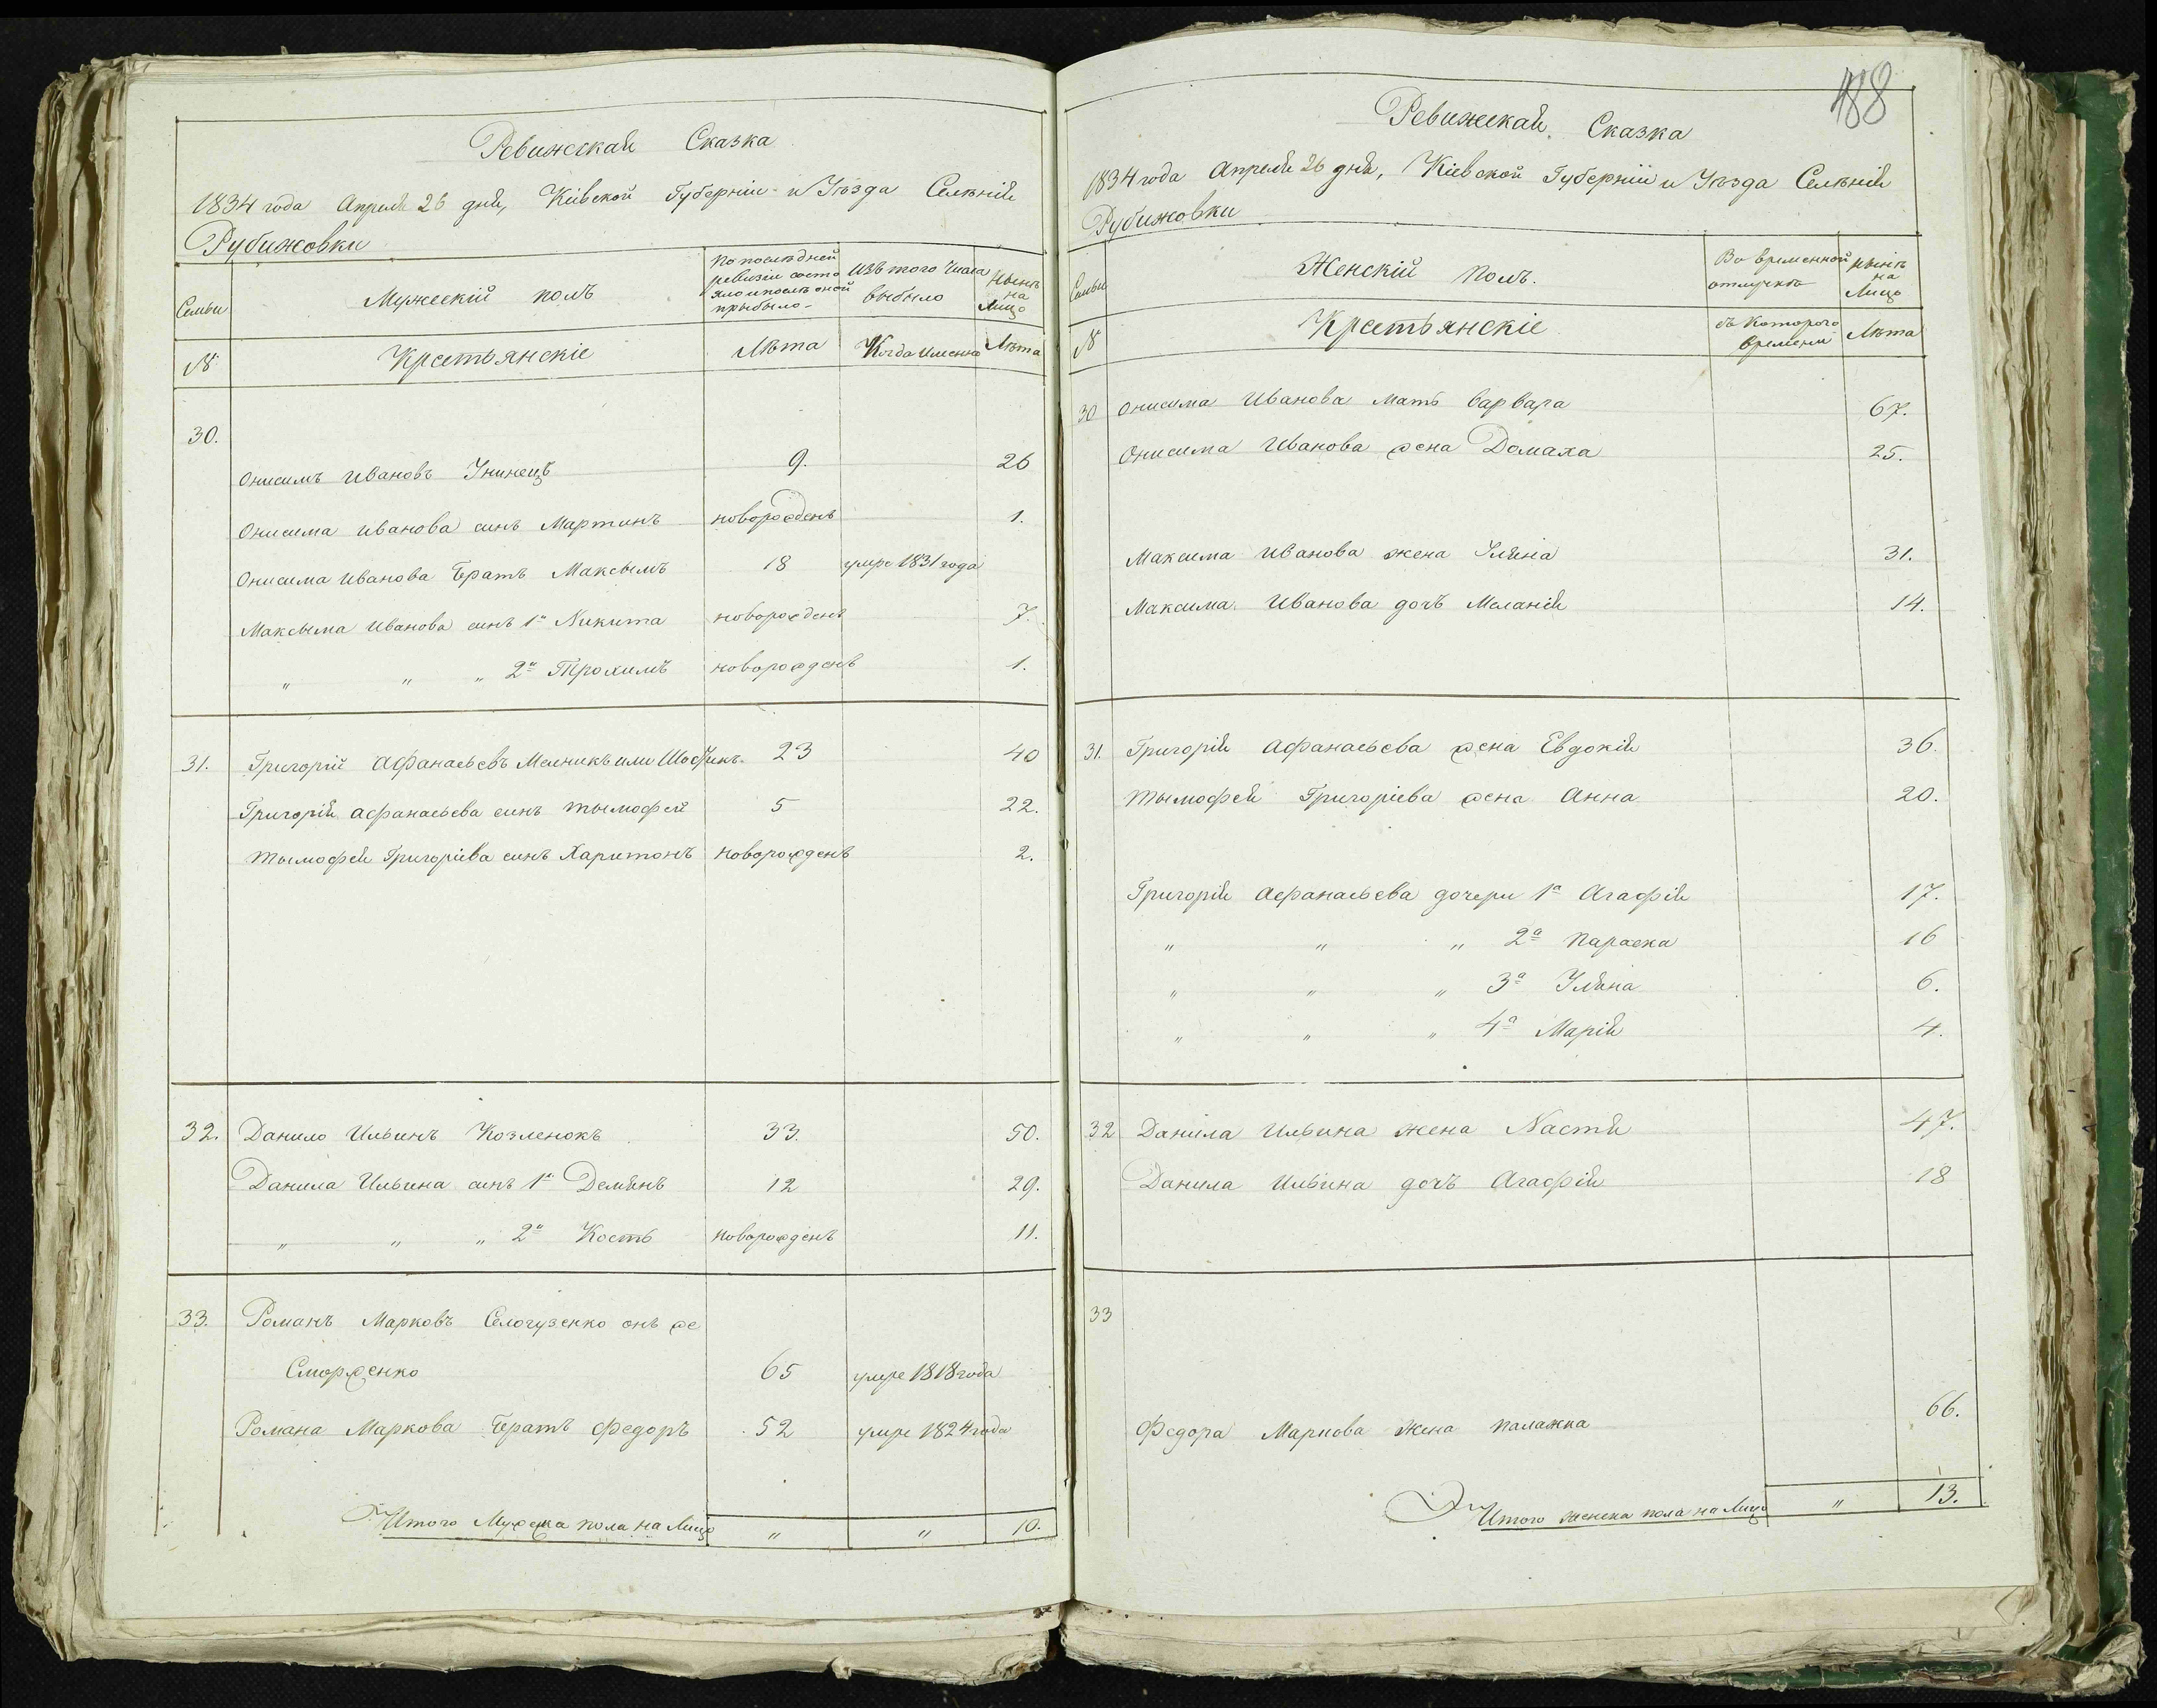 Ревижская Сказка
1834 года Апреля 26 дня, Кіевской Губерніи и Уѣзда Селѣнія
Рубижовки
Семьи
Мужескій полъ
По послѣдней ревизіи состояло и послѣ оной прыбыло
Изъ того Числа выбыло
Нынѣ на Лицо
№
Крестьянскіе
Лѣта
Когда именно
Лѣта
30.
Онисимъ Ивановъ Унинецъ 9. 26
Онисима Иванова синъ Мартинъ новорожденъ 1.
Онисима Иванова Братъ Максымъ 18 умре 1831 года
Максыма Иванова синъ 1й Никита новорожденъ 7.
„ „ „ 2й Трохимъ новорожденъ 1.
31. Григорій Афанасьевъ Мелникъ или 23 40
Григорія Афанасьева синъ Тымофей 5 22.
Тымофея Григоріева синъ Харитонъ новорожденъ 2.
32. Данило Ильинъ Козленокъ 33. 50.
Данила Ильина синъ 1й Демянъ 12 29.
„ „ „ 2й Кость новорожденъ 11.
33. Романъ Марковъ Селогузенко онъ же
Сморженко 65 умре 1818 года
Романа Маркова Братъ Федоръ 52 умре 1824 года
Итого Мужеска пола на Лицо „ „ 10.
488
Ревижская Сказка
1834 года Апреля 26 дня, Кіевской Губерніи и Уѣзда Селѣнія
Рубижовки
Семьи
Женскій Полъ.
Во временной отлучкѣ
нынѣ на Лицо
№
Крестьянскіе
съ Которого времени
Лѣта
30 Онисима Иванова Мать Варвара 67.
Онисима Иванова жена Домаха 25.
Максима Иванова жена Уляна 31.
Максима Иванова дочъ Меланія 14.
31. Григорія Афанасьева жена Евдокія 36.
Тымофея Григоріева жена Анна 20.
Григорія Афанасьева дочери 1а Агафія 17.
„ „ „ 2а Параска 16
„ „ „ 3а Уляна 6.
„ „ „ 4а Марія 4.
32 Данила Ильина жена Настя 47.
Данила Ильина дочъ Агафія 18
33
Федора Маркова Жена Палажка 66.
Итого женска пола на Лицо „ 13.